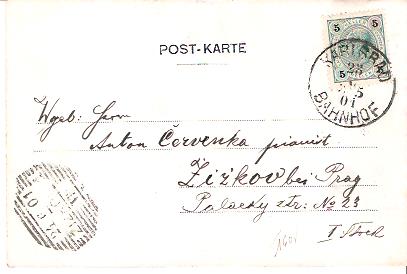 POST-KARTE
5 5
5
KARLSBAD
23
5
01
BAHNHOF
Wgeb: Herrn
Anton Červenka pianist
Žižkov bei Prag
Palacky str: No 23
I Stock
01